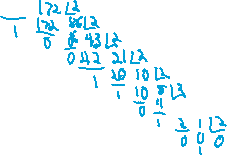 172 | 2
172 86 | 2
1 0 8 43 | 2
0 42 21 | 2
1 20 10 | 2
1 10 5 | 2
0 4
1 2 1 | 2
0 0 0
1